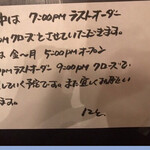 中は 7:00PM ラストオーダー
PM クローズ とさせていただきます。
は 金〜月 5:00PM オープン
PM ラストオーダー 9:00PM クローズ で
していく予定です。また宜しくお願い
ます。